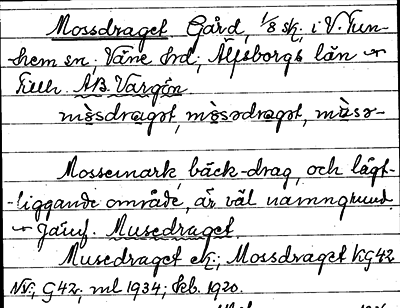 Mossdraget Gård, 1/8 sk, i V. Tun-
hem sn, Väne hd, Älfsborgs län
Tillh. A.B. Vargön
mòsdragət, mòsədragət, mùsə-
Mossemark, bäck-drag, och lägt-
-liggande område, är väl namngrund.
Jämf. Musedraget.
Musedraget ek; Mossdraget KG42
NV; G42; ml 1934; Feb. 1920.